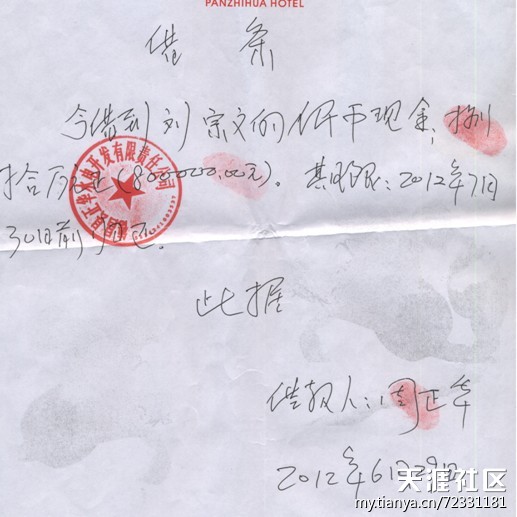 PANZHIHUA HOTEL
借条
今借到刘宗文的人民币现金,捌
拾万元正(800000.00元)。其期限:2012年7月
30日前归还。
开发有限责任公司
此据
借款人:周正华
2012年6月29日
天涯社区
my.tianya.cn/72331181